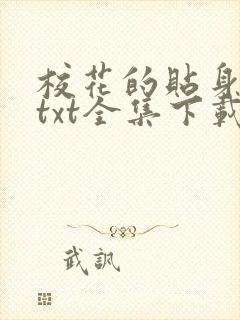 校花的貼身
txt全集下載
武訊